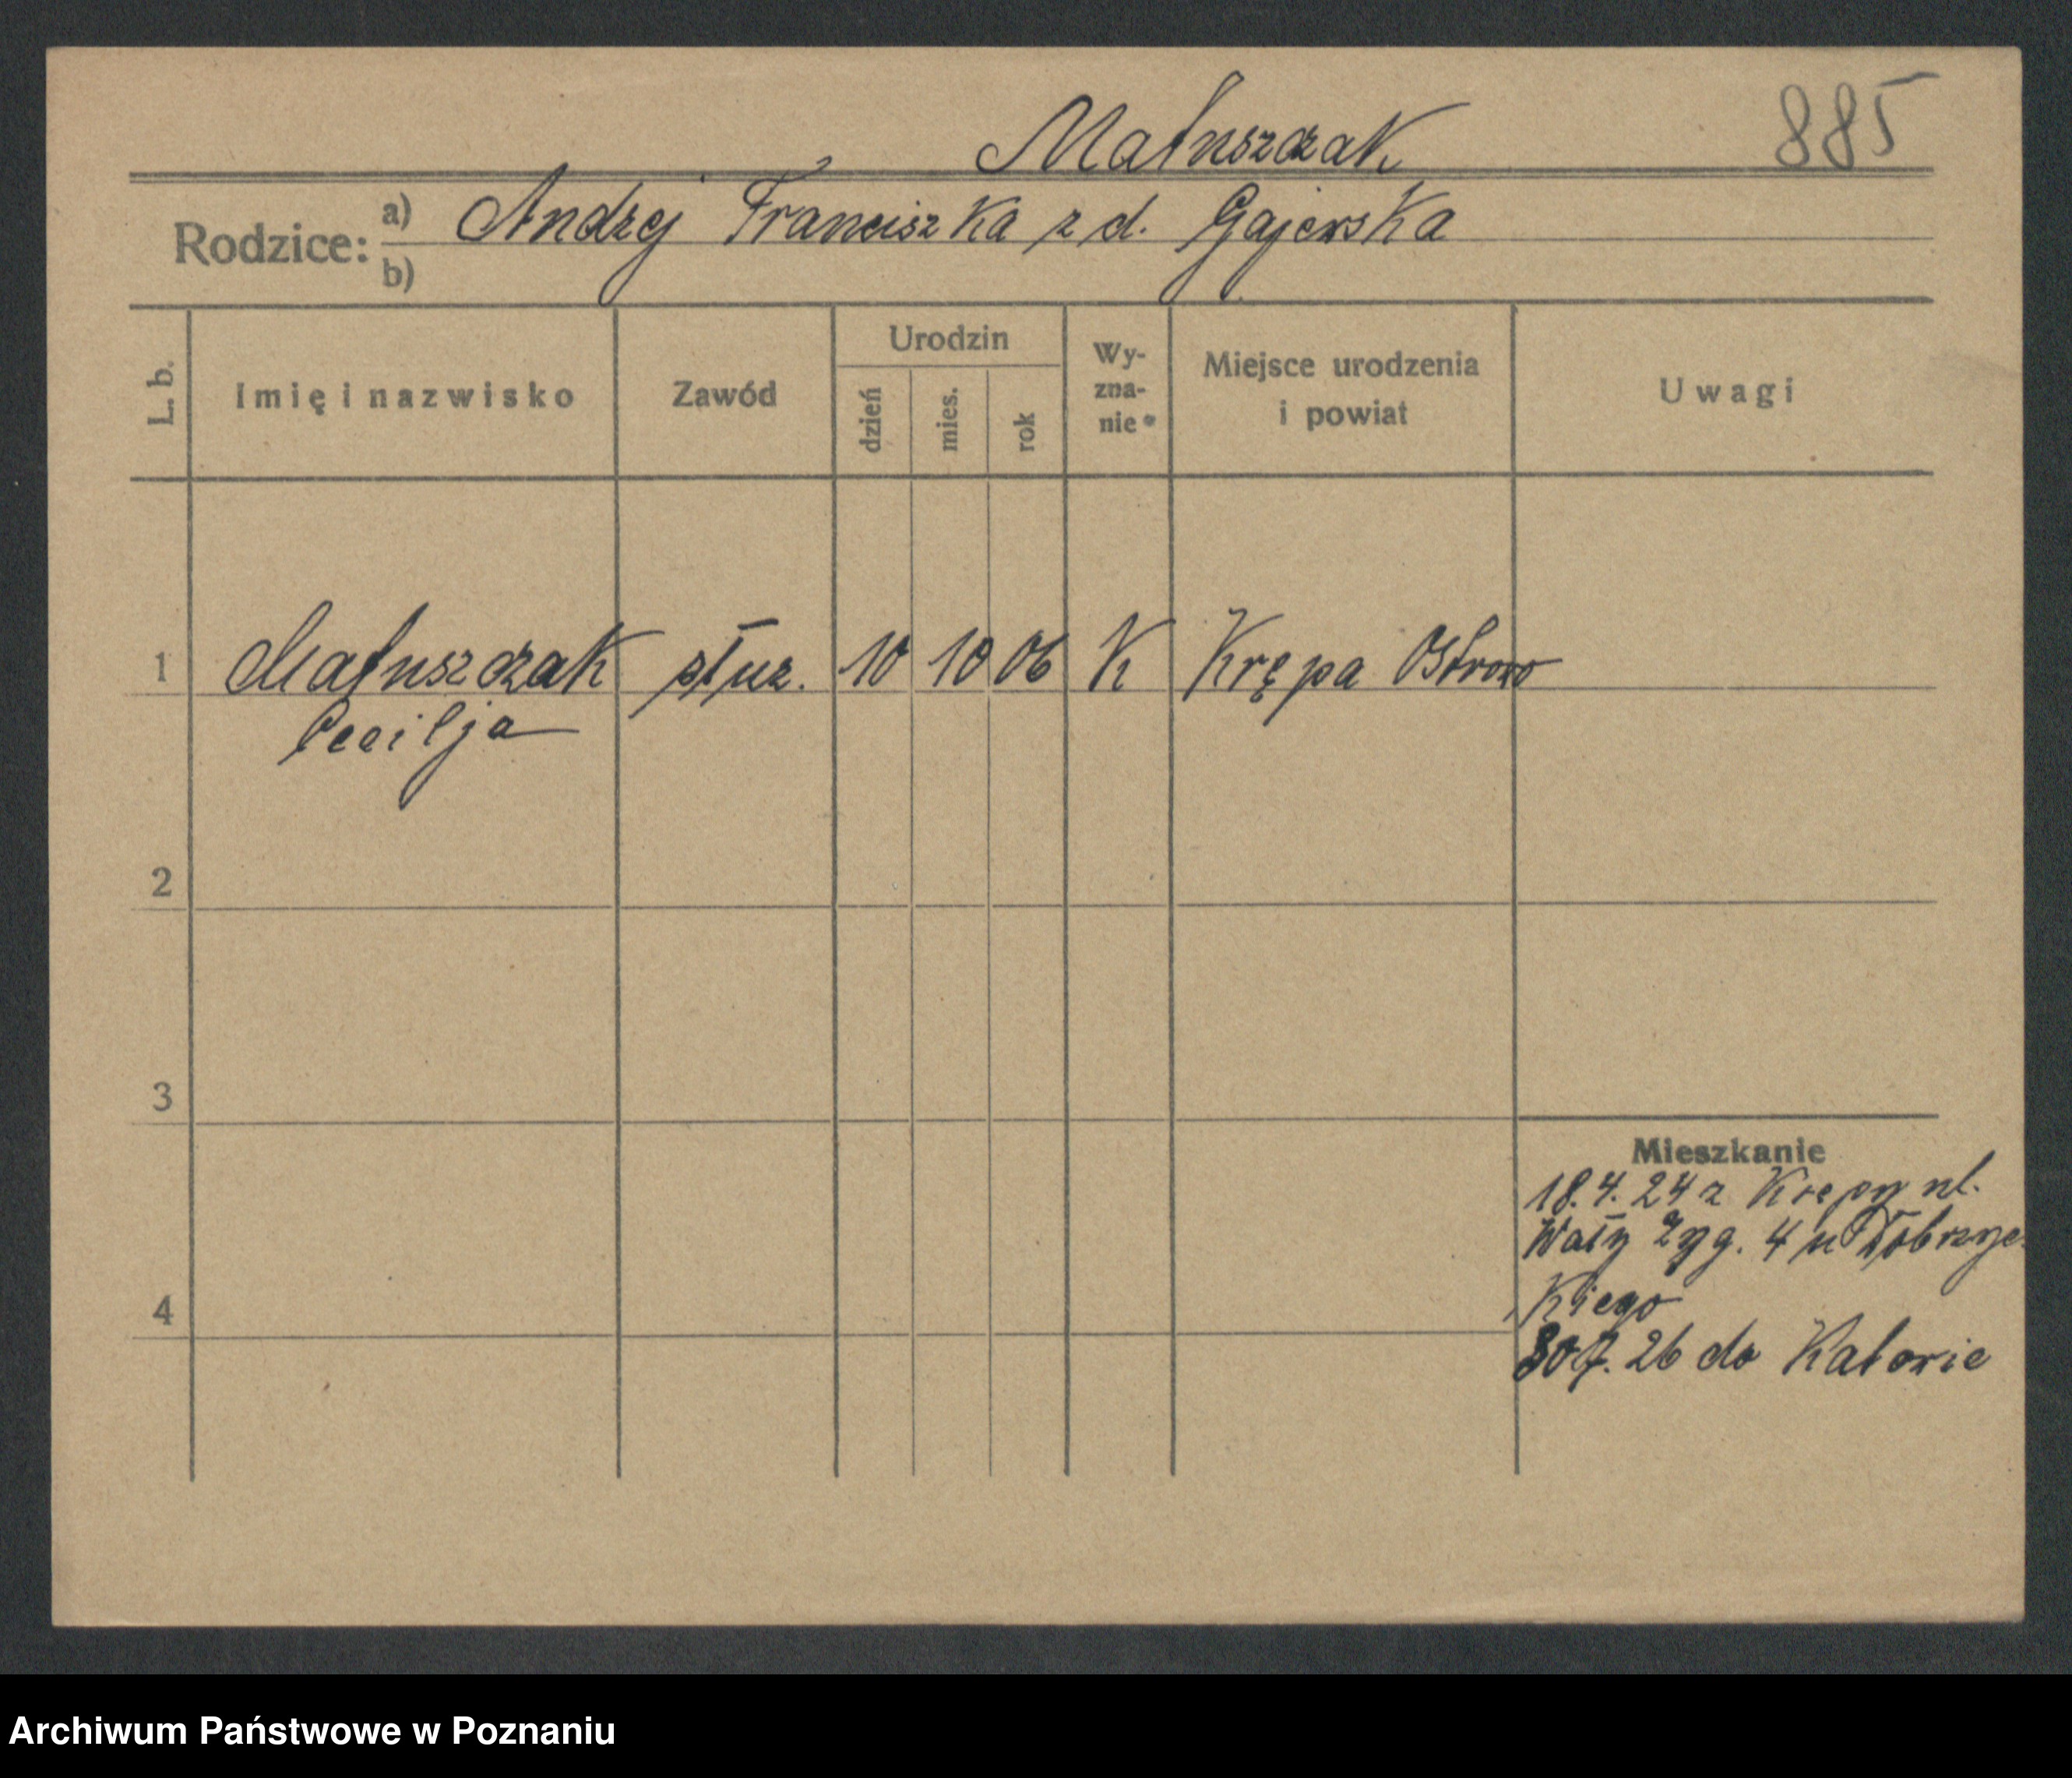 885
Matuszczak
Rodzice: a) Andrzej Franciszka z d. Gajewska
b)
L. b. Imię i nazwisko Zawód Urodzin dzień mies. rok Wy-zna-nie Miejsce urodzenia i powiat Uwagi
1 Matuszczak służ. 10 10 06 K Krępa Ostrowo
Cecilja
2
3
Mieszkanie
18.4.24 z Krępy ul.
Wały Zyg. 4 u Dobrzyc
kiego
4
26 do Katowic
Archiwum Państwowe w Poznaniu